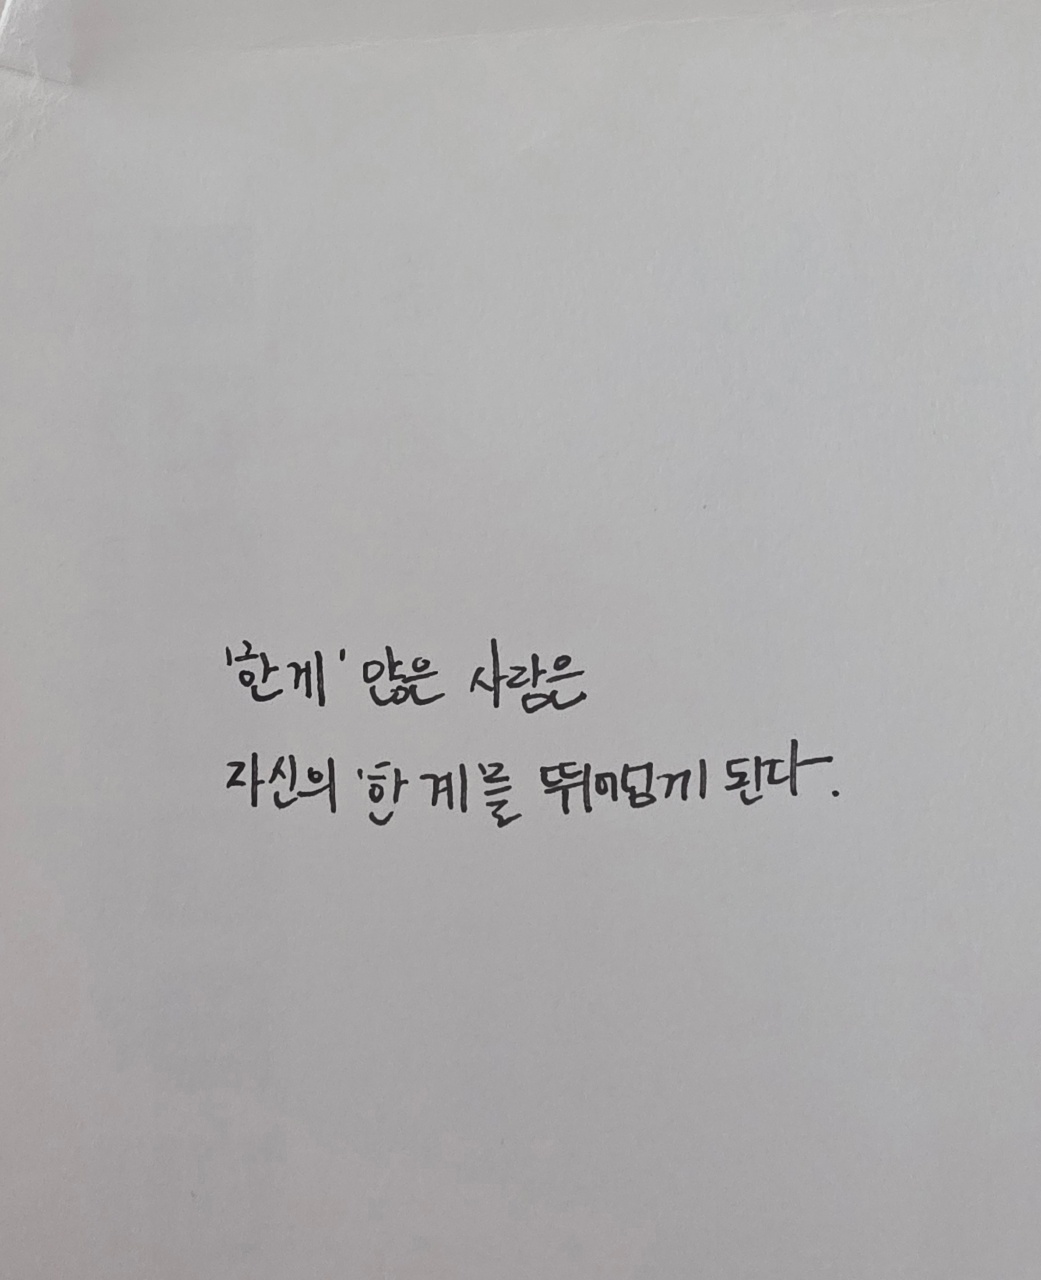 '한게' 많은 사람은
자신의 '한계'를 뛰어넘게 된다.